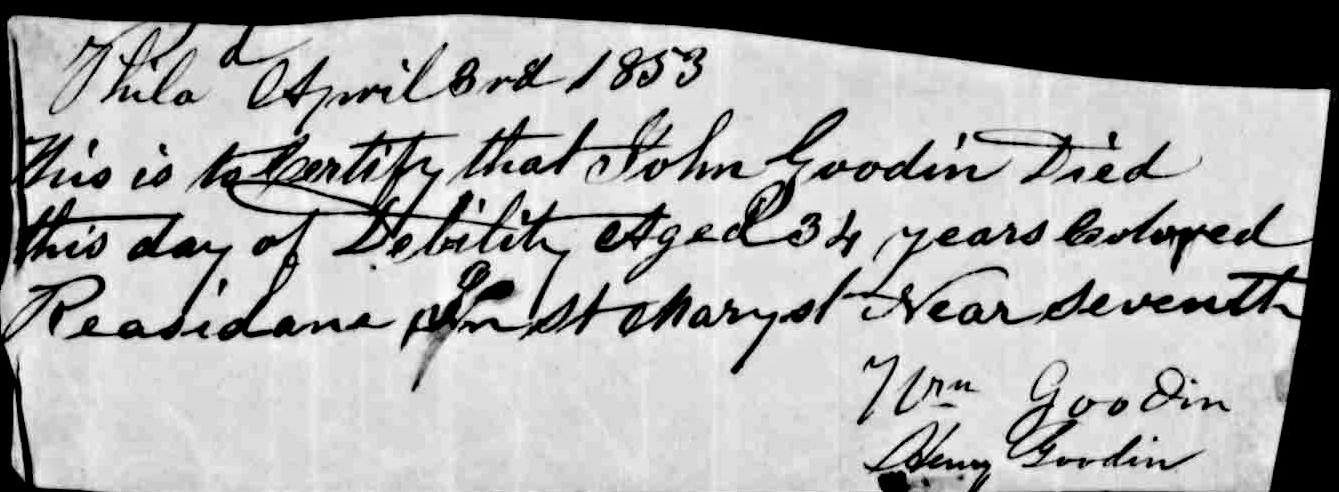 Philad April 3rd 1853
This is to Certify that John Goodin Died
this day of Debility Aged 34 years Colored
Reasidane In St Mary st Near Seventh
Wm Goodin
Henry Goodin